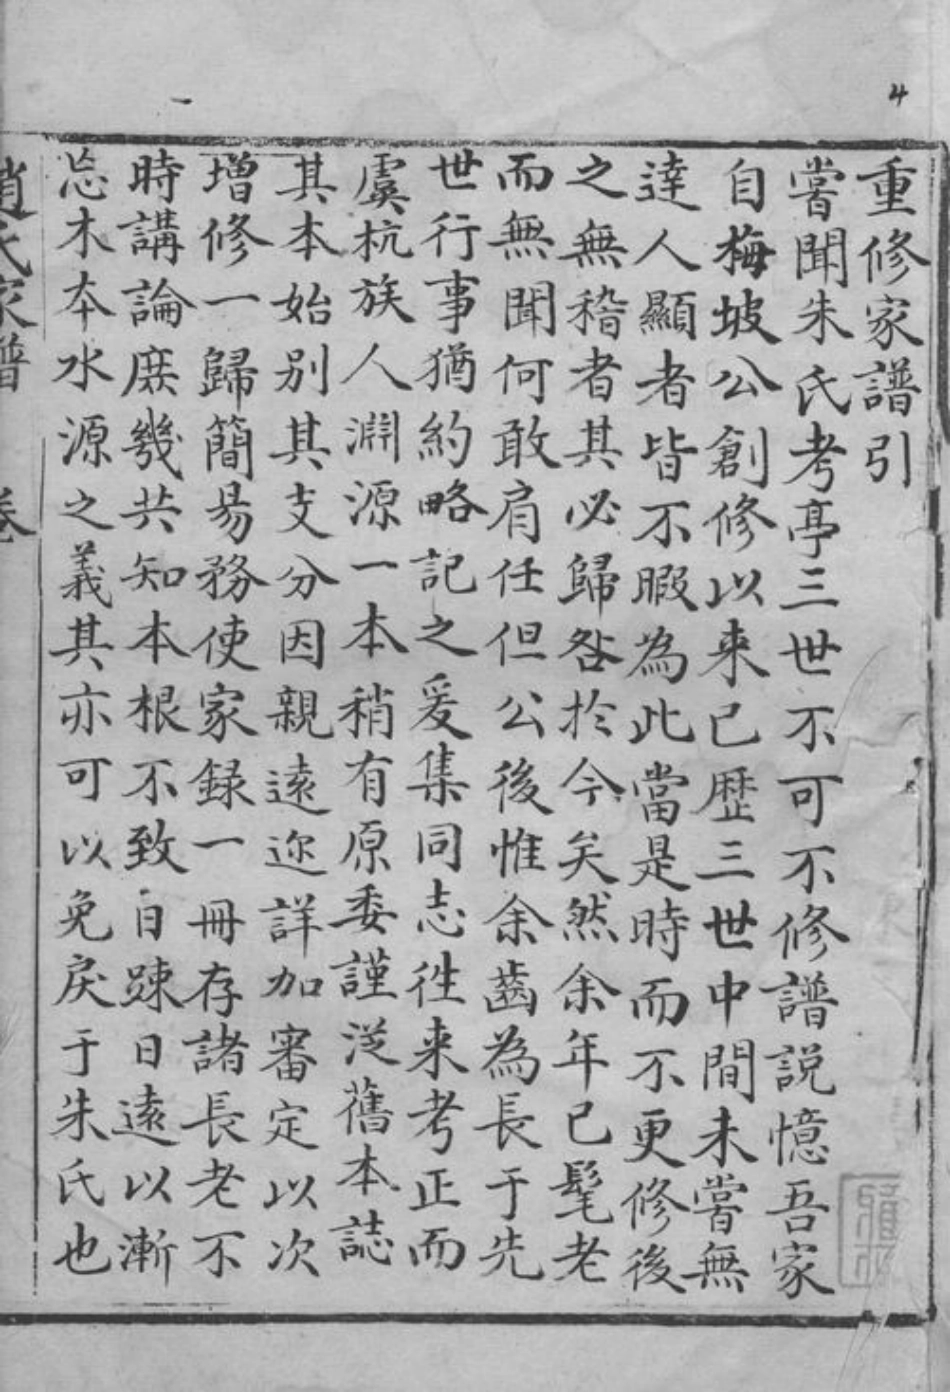 4
重修家譜引
嘗聞朱氏考亭三世不可不修譜説憶吾家
自梅坡公創修以来已歴三世中間未嘗無
達人顯者皆不暇為此當是時而不更修後
之無稽者其必歸咎於今矣然余年已髦老
而無聞何敢肩任但公後惟余齒為長于先
世行事猶約略記之爰集同志徃来考正而
虞杭族人淵源一本稍有原委謹从舊本誌
其本始别其支分因親逺迩詳加審定以次
增修一歸簡易務使家録一冊存諸長老不
時講論庶幾共知本根不致日踈日逺以漸
忘木本水源之義其亦可以免戾于朱氏也
趙氏家譜 卷